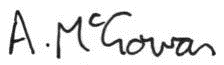 A. McGowan